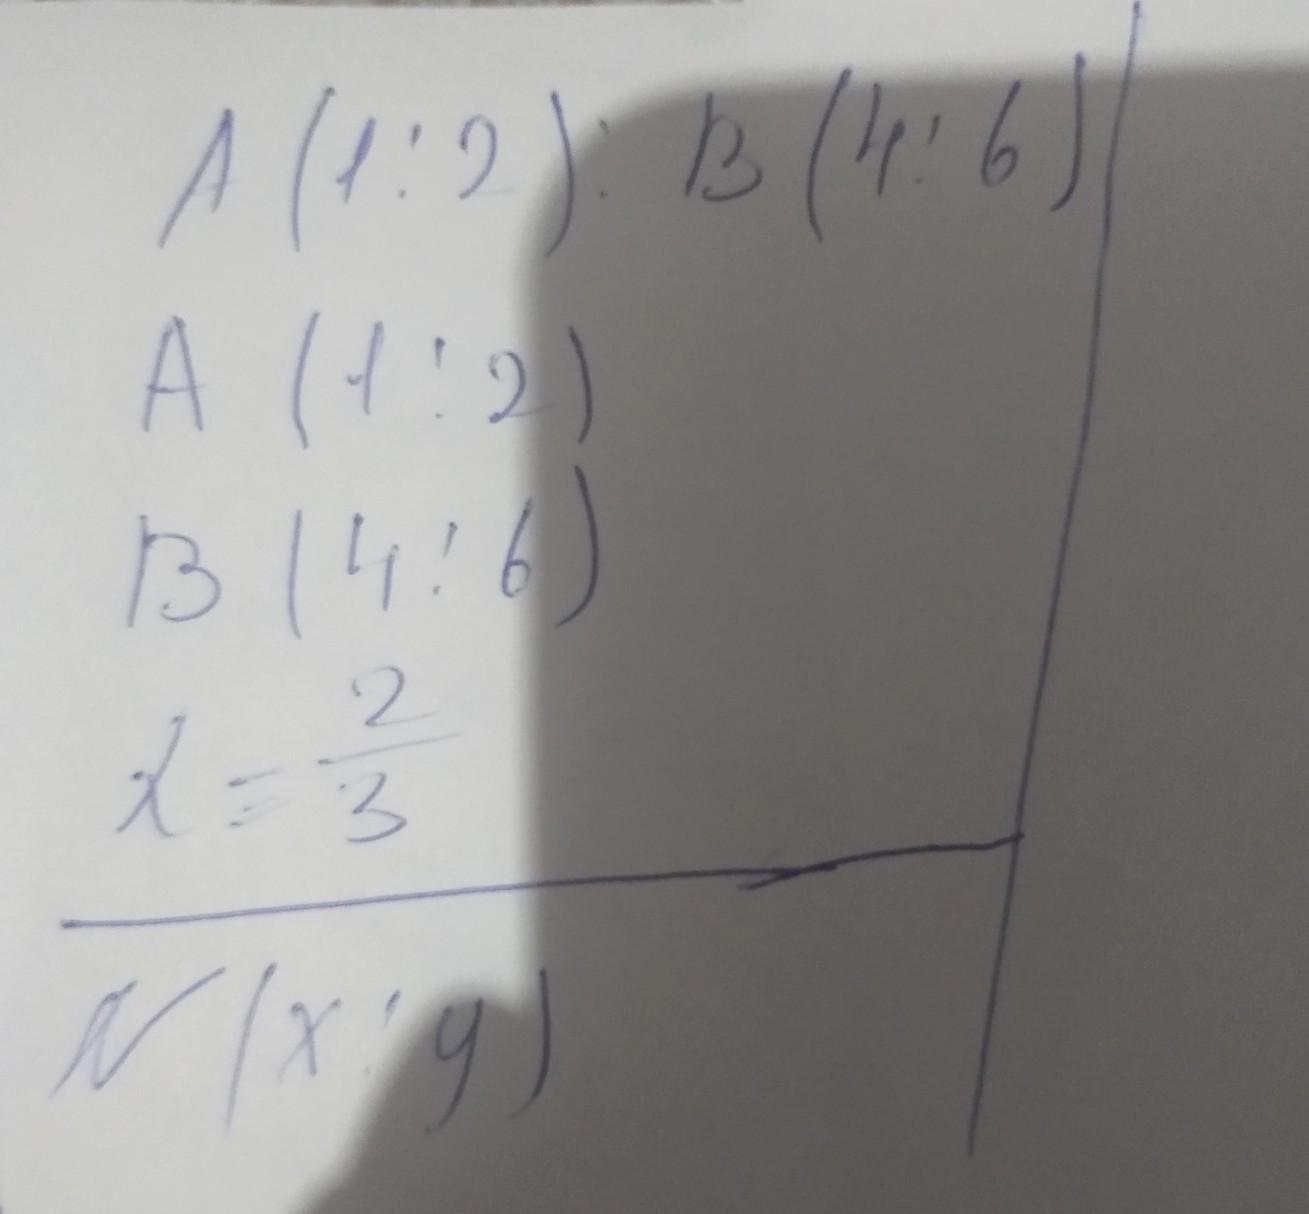 A (1:2): B (4:6)
A (1:2)
B (4:6)
λ = 2/3
N (x:y)